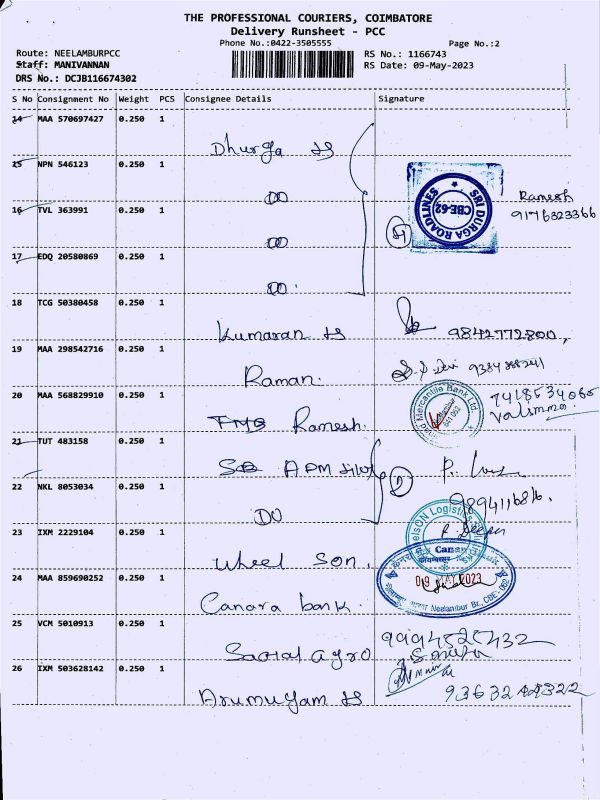 THE PROFESSIONAL COURIERS, COIMBATORE
Delivery Runsheet - PCC
Phone No.:0422-3505555
Page No.:2
Route: NEELAMBURPCC
RS No.: 1166743
Staff: MANIVANNAN
RS Date: 09-May-2023
DRS No.: DCJB116674302
S No Consignment No Weight PCS Consignee Details Signature
14 MAA 570697427 0.250 1
Dhurga
15 NPN 546123 0.250 1
DO
Ramesh
9176323366
SRI DURGA ROADLINES
CBE-62
16 TVL 363991 0.250 1
DO
17 EDQ 20580869 0.250 1
DO
18 TCG 50380458 0.250 1
Kumaran
9842772800
19 MAA 298542716 0.250 1
Raman.
20 MAA 568829910 0.250 1
Ramesh.
Mercantile Bank Ltd.
7418534065
21 TUT 483158 0.250 1
APM
22 NKL 8053034 0.250 1
DO
23 IXM 2229104 0.250 1
Wheel Son.
Logistics
24 MAA 859690252 0.250 1
Canara bank.
Canara
09 MAY 2023
Neelambur Br., CBE - 062
25 VCM 5010913 0.250 1
agro
26 IXM 503628142 0.250 1
Arumugam